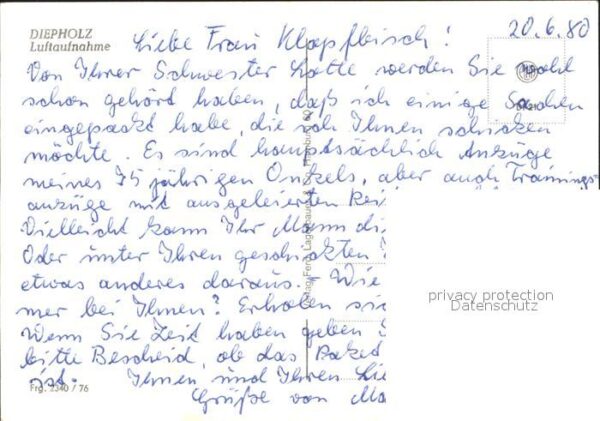 DIEPHOLZ
Luftaufnahme
20.6.80
Liebe Frau Klapfleisch!
Von Ihrer Schwester Lotte werden Sie wohl
schon gehört haben, daß ich einige Sachen
eingepackt habe, die ich Ihnen schicken
möchte. Es sind hauptsächlich Anzüge
meines 75jährigen Onkels, aber auch Trainings-
anzüge mit ausgeleierten Rei
Vielleicht kann Ihr Mann di
Oder unter Ihren geschickten
etwas anderes daraus. Wie
mer bei Ihnen? Erholen sie
Wenn Sie Zeit haben geben
bitte Bescheid, ob das Paket
ist. Ihnen und Ihren Lie
Grüße von Ma
Frg. 2340 / 76
privacy protection
Datenschutz